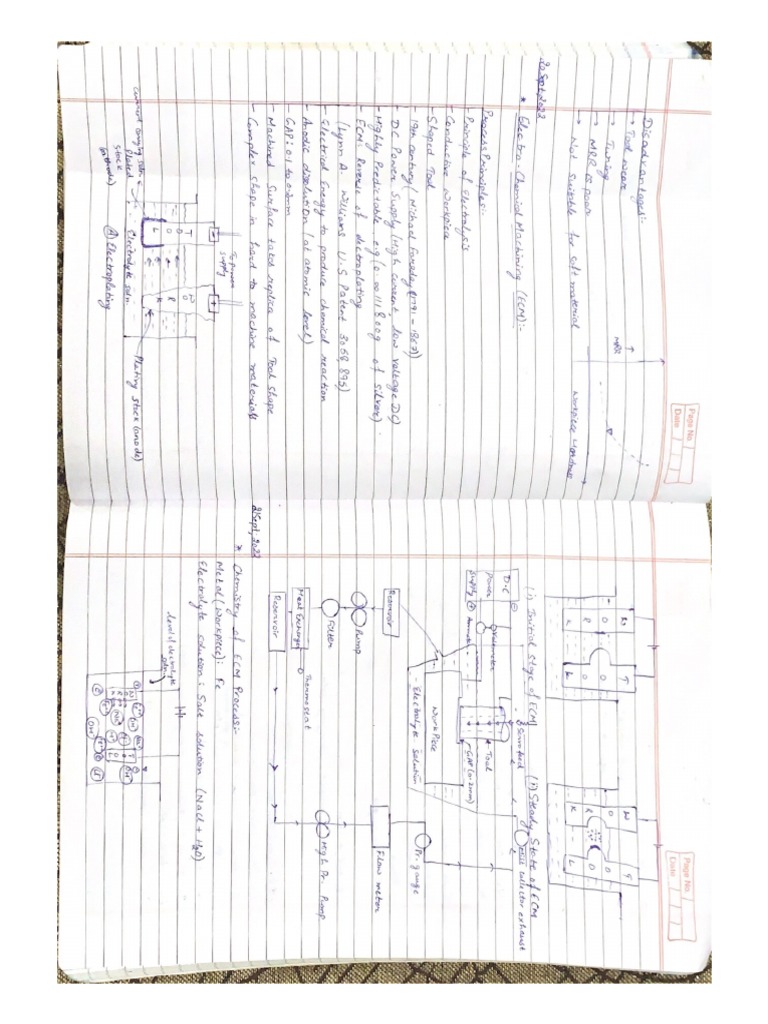 Page No.
Date
Disadvantages:-
→ Tool wear
→ Tuning
→ MRR is poor
→ Not Suitable for soft material
MRR
Workpiece Hardness
20 Sept, 2022
* Electro-Chemical Machining (ECM):-
Process Principles:-
- Principle of Electrolysis
- Conductive Workpiece
- Shaped Tool
- 19th century (Michael Faraday (1791-1867))
- DC Power Supply (High current low voltage DC)
- Highly Predictable e.g. (0.00111800g of silver)
- ECM: Reverse of electroplating
(Lynn A. Williams U.S Patent 3058,895)
- Electrical Energy to produce chemical reaction
- Anodic dissolution (at atomic level)
- GAP: 0.1 to 0.2mm
- Machined Surface takes replica of Tool shape
- Complex shape in hard to machine materials
To power supply
-
+
TOOL
WORK
Plated stock (cathode)
Electrolyte soln.
Plating stock (anode)
(A) Electroplating
Page No.
Date
WORK
TOOL
WORK
TOOL
(i) Initial Stage of ECM
(ii) Steady State of ECM
D.C Power Supply
Voltmeter
Ammeter
Tool
GAP
Workpiece
Electrolyte Solution
Reservoir
Pump
Filter
Heat Exchanger
Thermostat
Reservoir
Pr. gauge
Flow meter
High Pr. Pump
21 Sept, 2022
* Chemistry of ECM Process:-
Metal (Workpiece): Fe
Electrolyte solution: Salt solution (NaCl + H₂O)
level of electrolyte